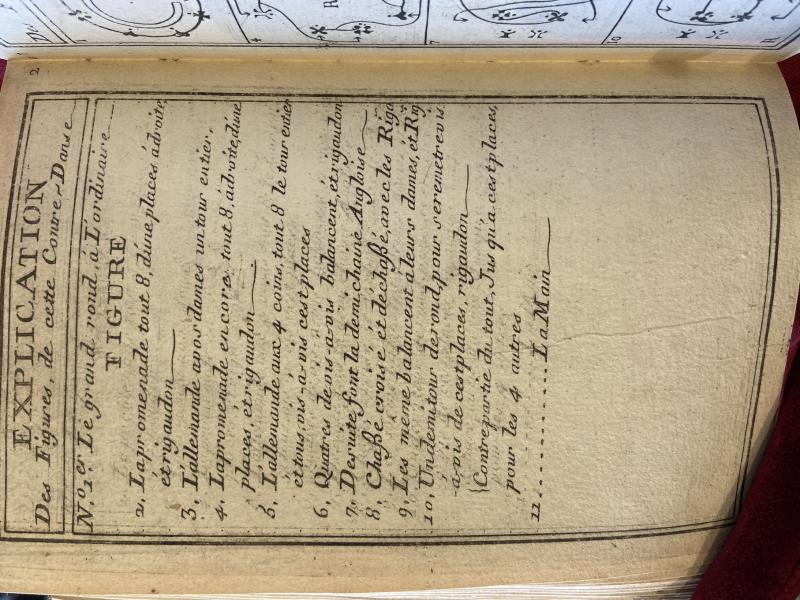 2
EXPLICATION
Des Figures, de cette Contre-Danse
N.º 1.er Le grand rond, à L'ordinaire
FIGURE
2, La promenade tout 8, d'une places á droite,
et rigaudon
3, L'allemande a vos dames un tour entier,
4, La promenade encore tout 8, á droite, d'une
places, ét rigaudon
5, L'allemande aux 4 coins, tout 8 le tour entier
et tous, vis-á-vis ces t places
6, Quatres de vis-a-vis balancent, ét rigaudon
7, De suite font la demi chaine Angloise
8, Chaßé croisé et déchaßé, avec les Riga
9, Les meme balancent a leurs dames, ét Rig
10, Un demi tour de rond, pour se remetre vis
-á-vis de ces t places, rigaudon
Contre partie du tout, Jus qu'á ces t places,
pour les 4 autres
11 ............ La Main